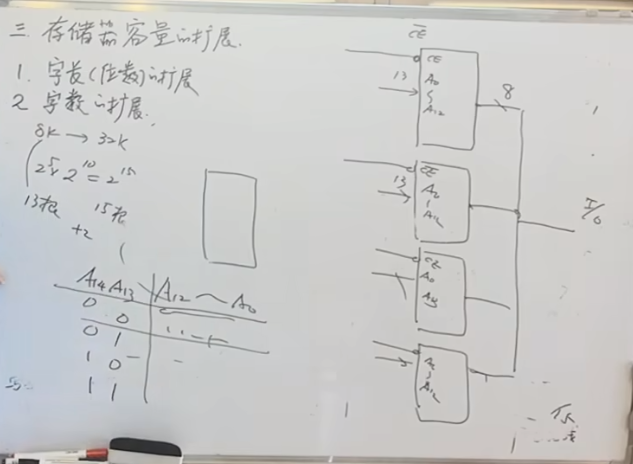 三. 存储器容量的扩展.
1. 字长(位数)的扩展
2 字数的扩展.
8K → 32K
2^10 = 2^15
13根 15根
+2
A14 A13 A12 ~ A0
0 0
0 1
1 0
1 1
CE
CE
13
A0
A12
8
CE
13
A12
I/O
CE
A0
A12